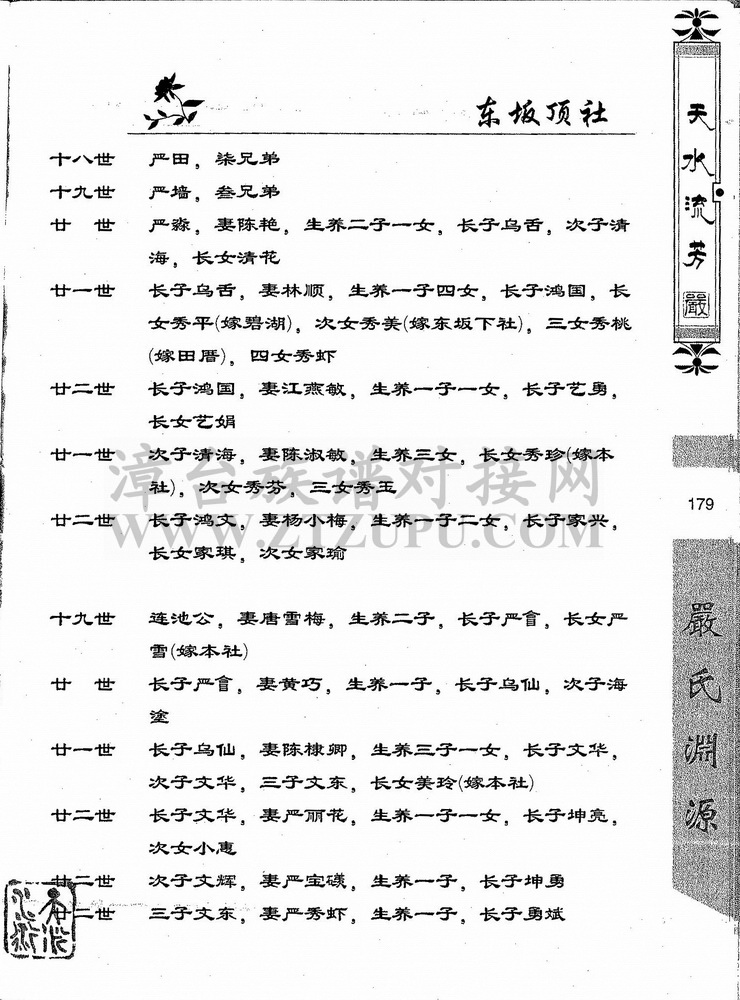 东坂顶社
十八世 严田，柒兄弟
十九世 严墙，叁兄弟
廿 世 严淼，妻陈艳，生养二子一女，长子乌舌，次子清
海，长女清花
廿一世 长子乌舌，妻林顺，生养一子四女，长子鸿国，长
女秀平(嫁碧湖)，次女秀美(嫁东坂下社)，三女秀桃
(嫁田厝)，四女秀虾
廿二世 长子鸿国，妻江燕敏，生养一子一女，长子艺勇，
长女艺娟
廿一世 次子清海，妻陈淑敏，生养三女，长女秀珍(嫁本
社)，次女秀芬，三女秀玉
廿二世 长子鸿文，妻杨小梅，生养一子二女，长子家兴，
长女家琪，次女家瑜
十九世 连池公，妻唐雪梅，生养二子，长子严，长女严
雪(嫁本社)
廿 世 长子严，妻黄巧，生养一子，长子乌仙，次子海
塗
廿一世 长子乌仙，妻陈棣卿，生养三子一女，长子文华，
次子文华，三子文东，长女美玲(嫁本社)
廿二世 长子文华，妻严丽花，生养一子一女，长子坤亮，
次女小惠
廿二世 次子文辉，妻严宝礒，生养一子，长子坤勇
廿二世 三子文东，妻严秀虾，生养一子，长子勇斌
漳台族谱对接网
WWW.ZTZUPU.COM
天水流芳
嚴
179
嚴氏淵源